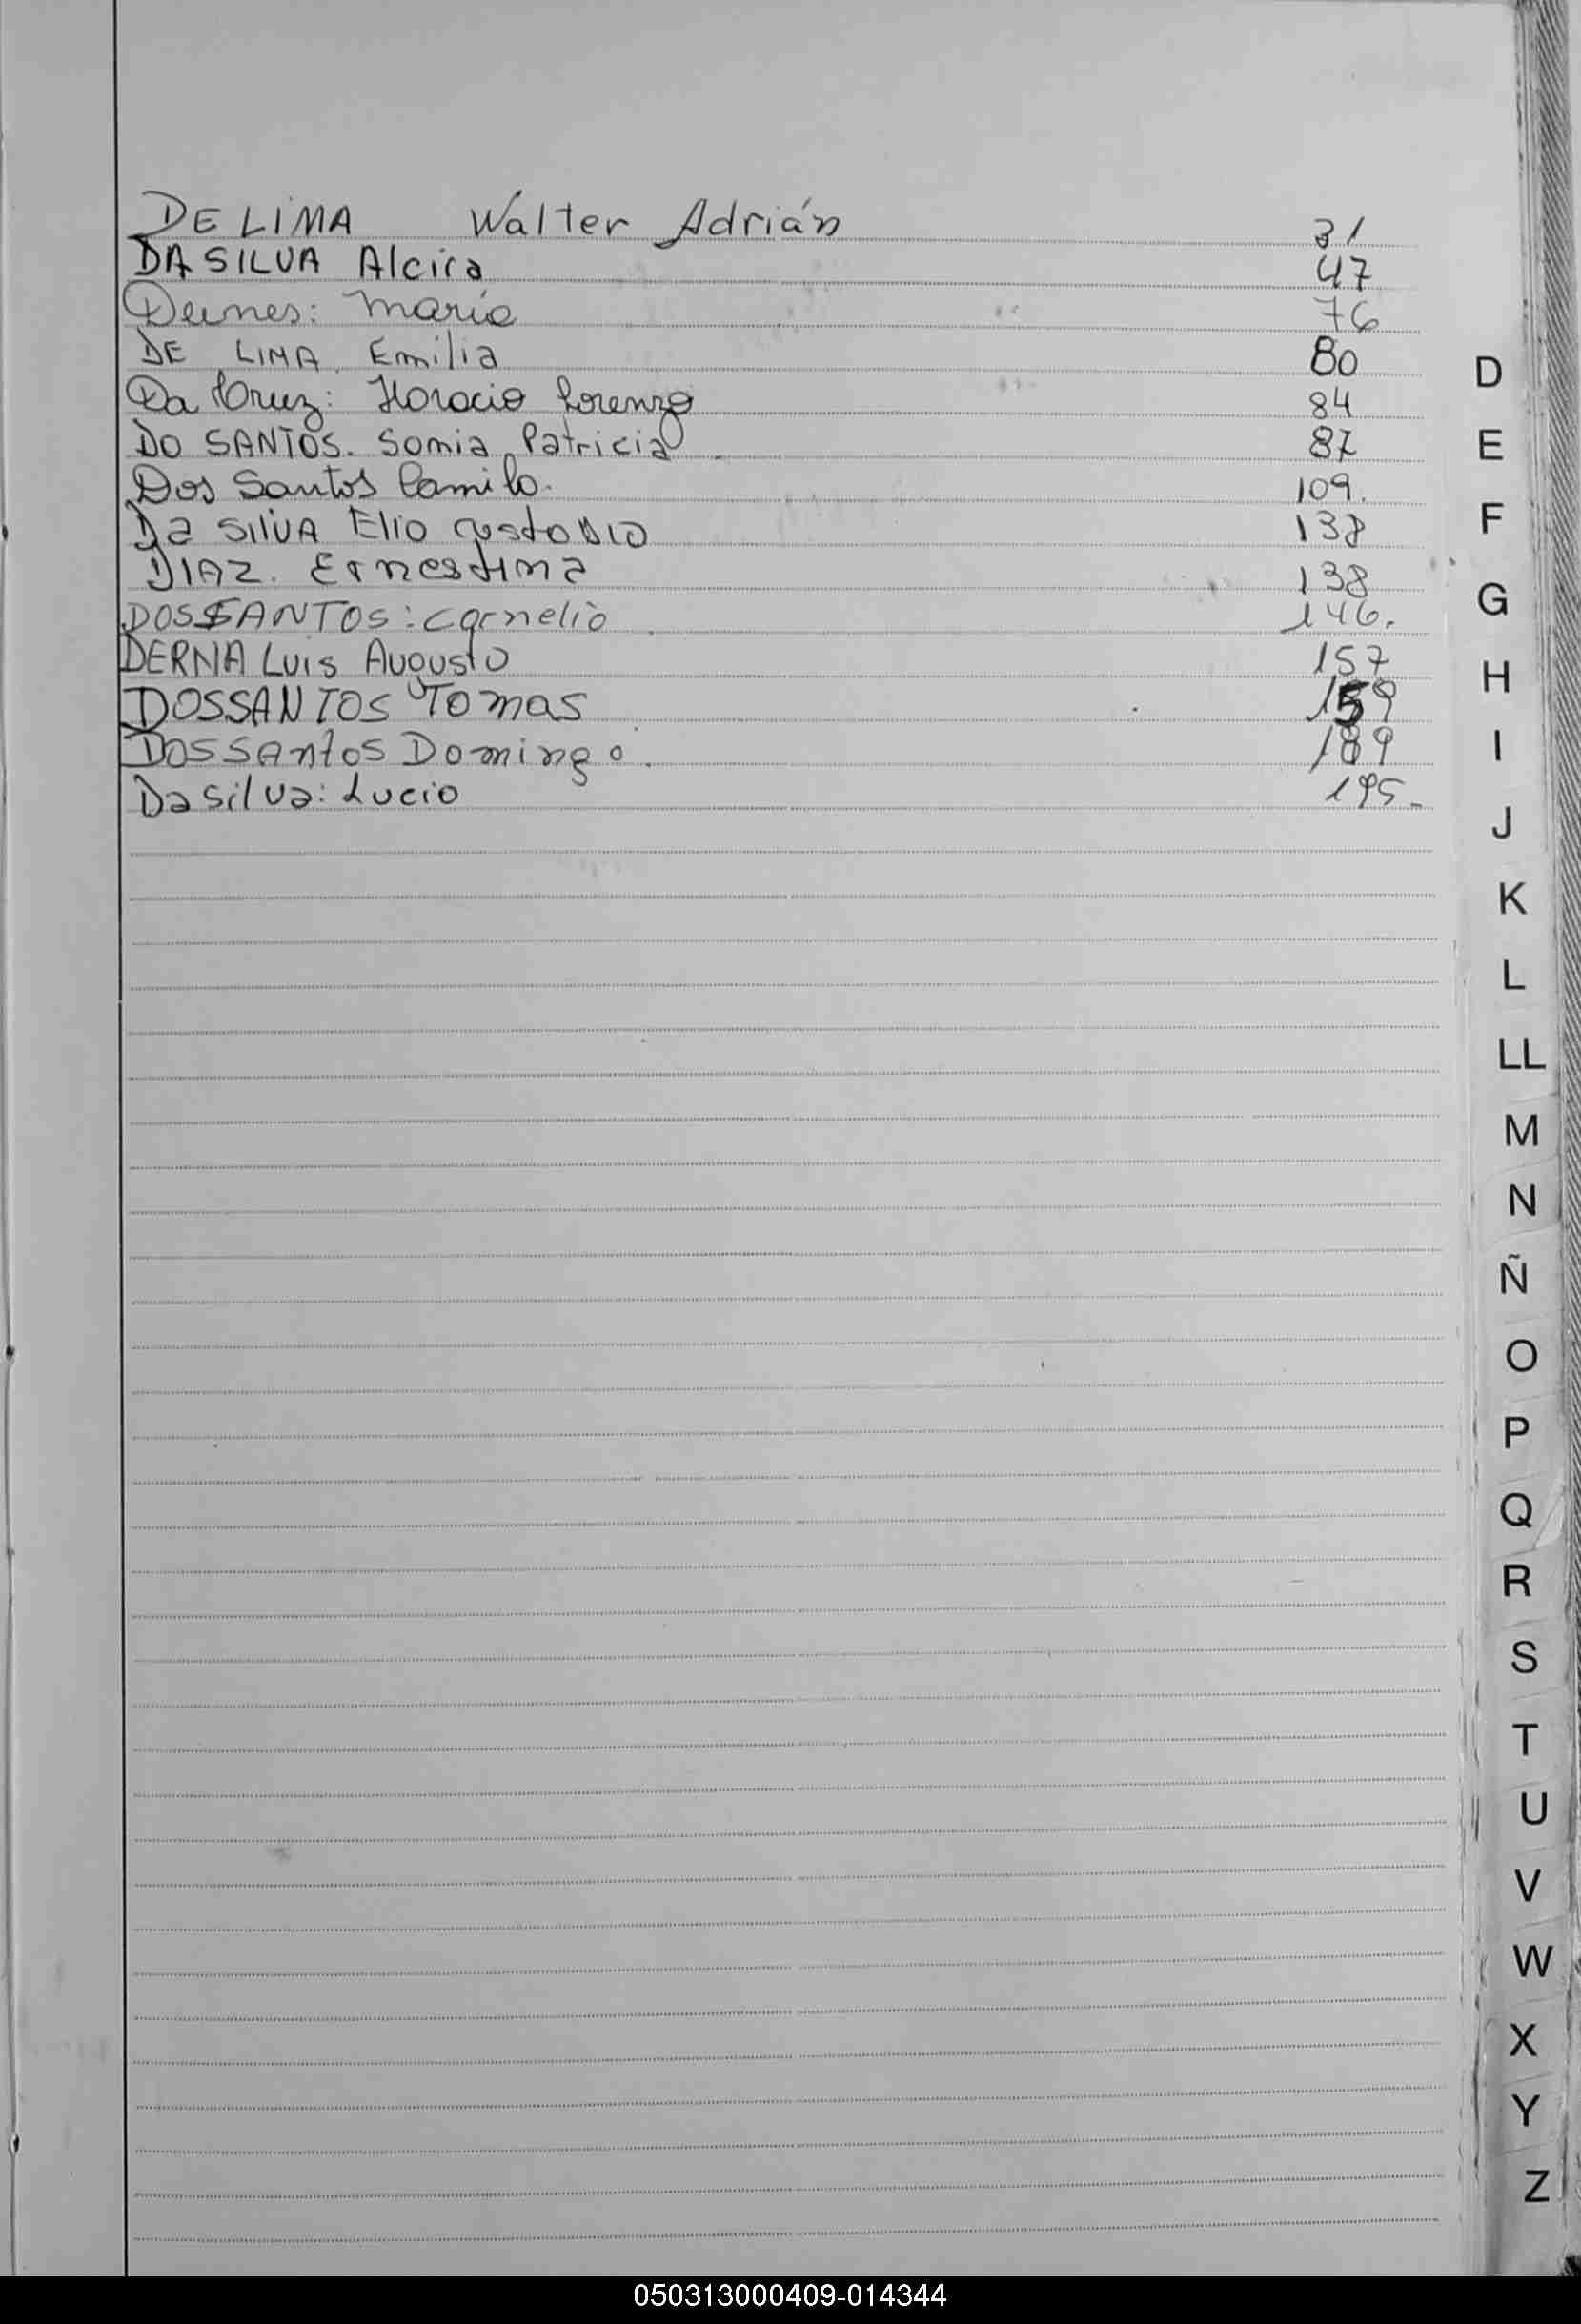 DE LIMA Walter Adrián 31
DA SILVA Alcira 47
Deines: Maria 76
DE LIMA Emilia 80
Da Cruz: Horacio Lorenzo 84
DO SANTOS. Sonia Patricia 87
Dos Santos Camilo. 109.
Da SilVA Elio custoDIO 138
DIAZ. Ernestina 138
DOSSANTOS: Cornelio 146.
DERNA Luis Augusto 157
DOSSANTOS Tomas 159
DosSantos Domingo. 189
Dasilva: Lucio 195.
D
E
F
G
H
I
J
K
L
LL
M
N
Ñ
O
P
Q
R
S
T
U
V
W
X
Y
Z
050313000409-014344